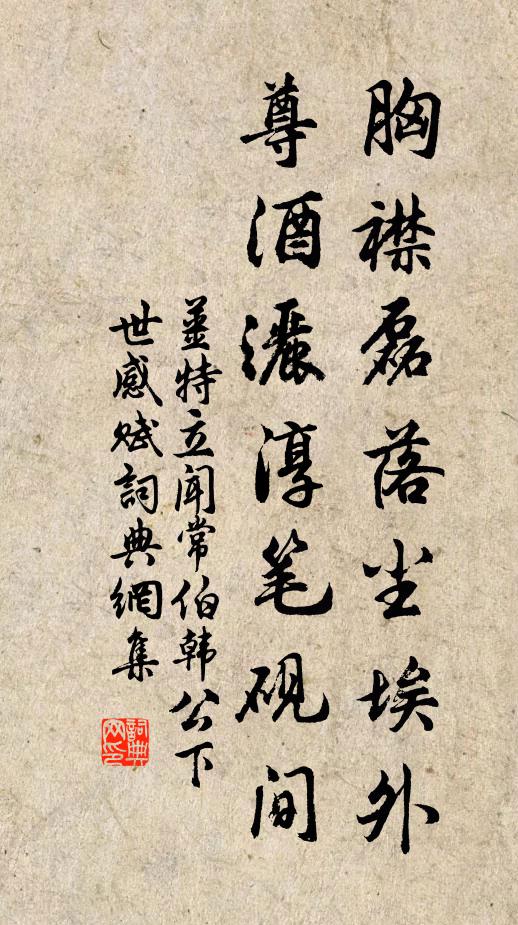 胸襟磊落尘埃外
尊酒淳笔硯间
薑特立闻常伯韩公下
世感赋詞典網集
詞典网印